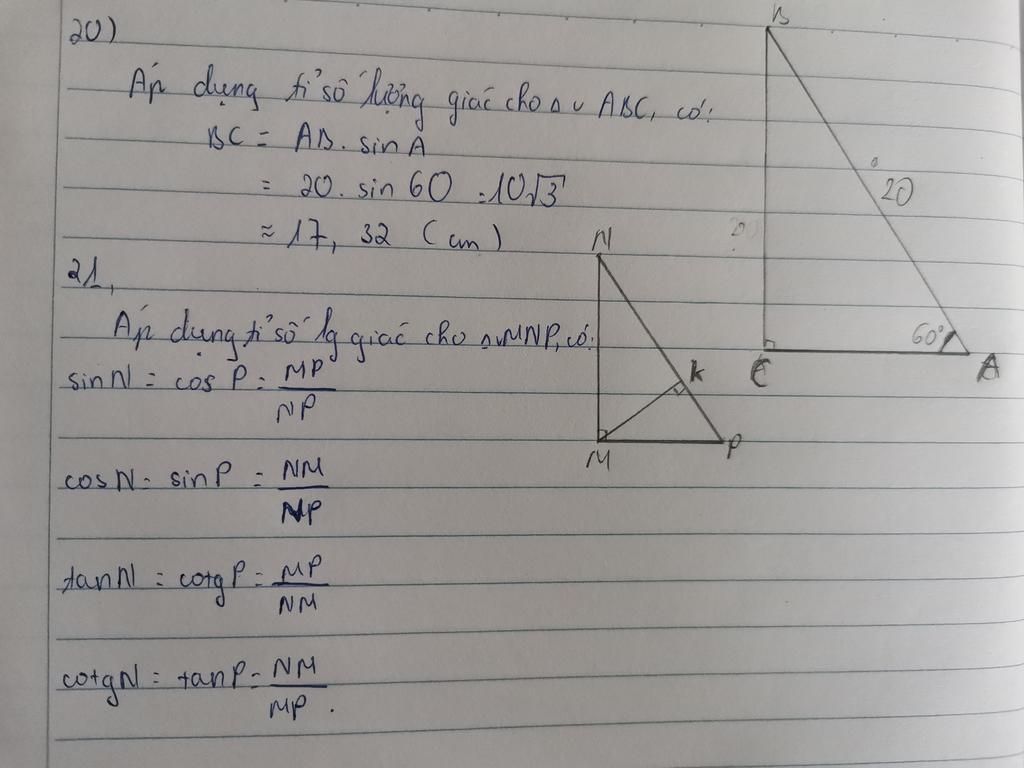 20)
Áp dụng tỉ số lượng giác cho Δ v ABC, có:
BC = AB. sin A
= 20. sin 60 = 10√3
≈ 17, 32 (cm)
B
20
60°
C
A
21,
Áp dụng tỉ số lg giác cho Δ v MNP, có:
sin N = cos P = MP/NP
cos N = sin P = NM/NP
tan N = cotg P = MP/NM
cotg N = tan P = NM/MP.
N
K
M
P